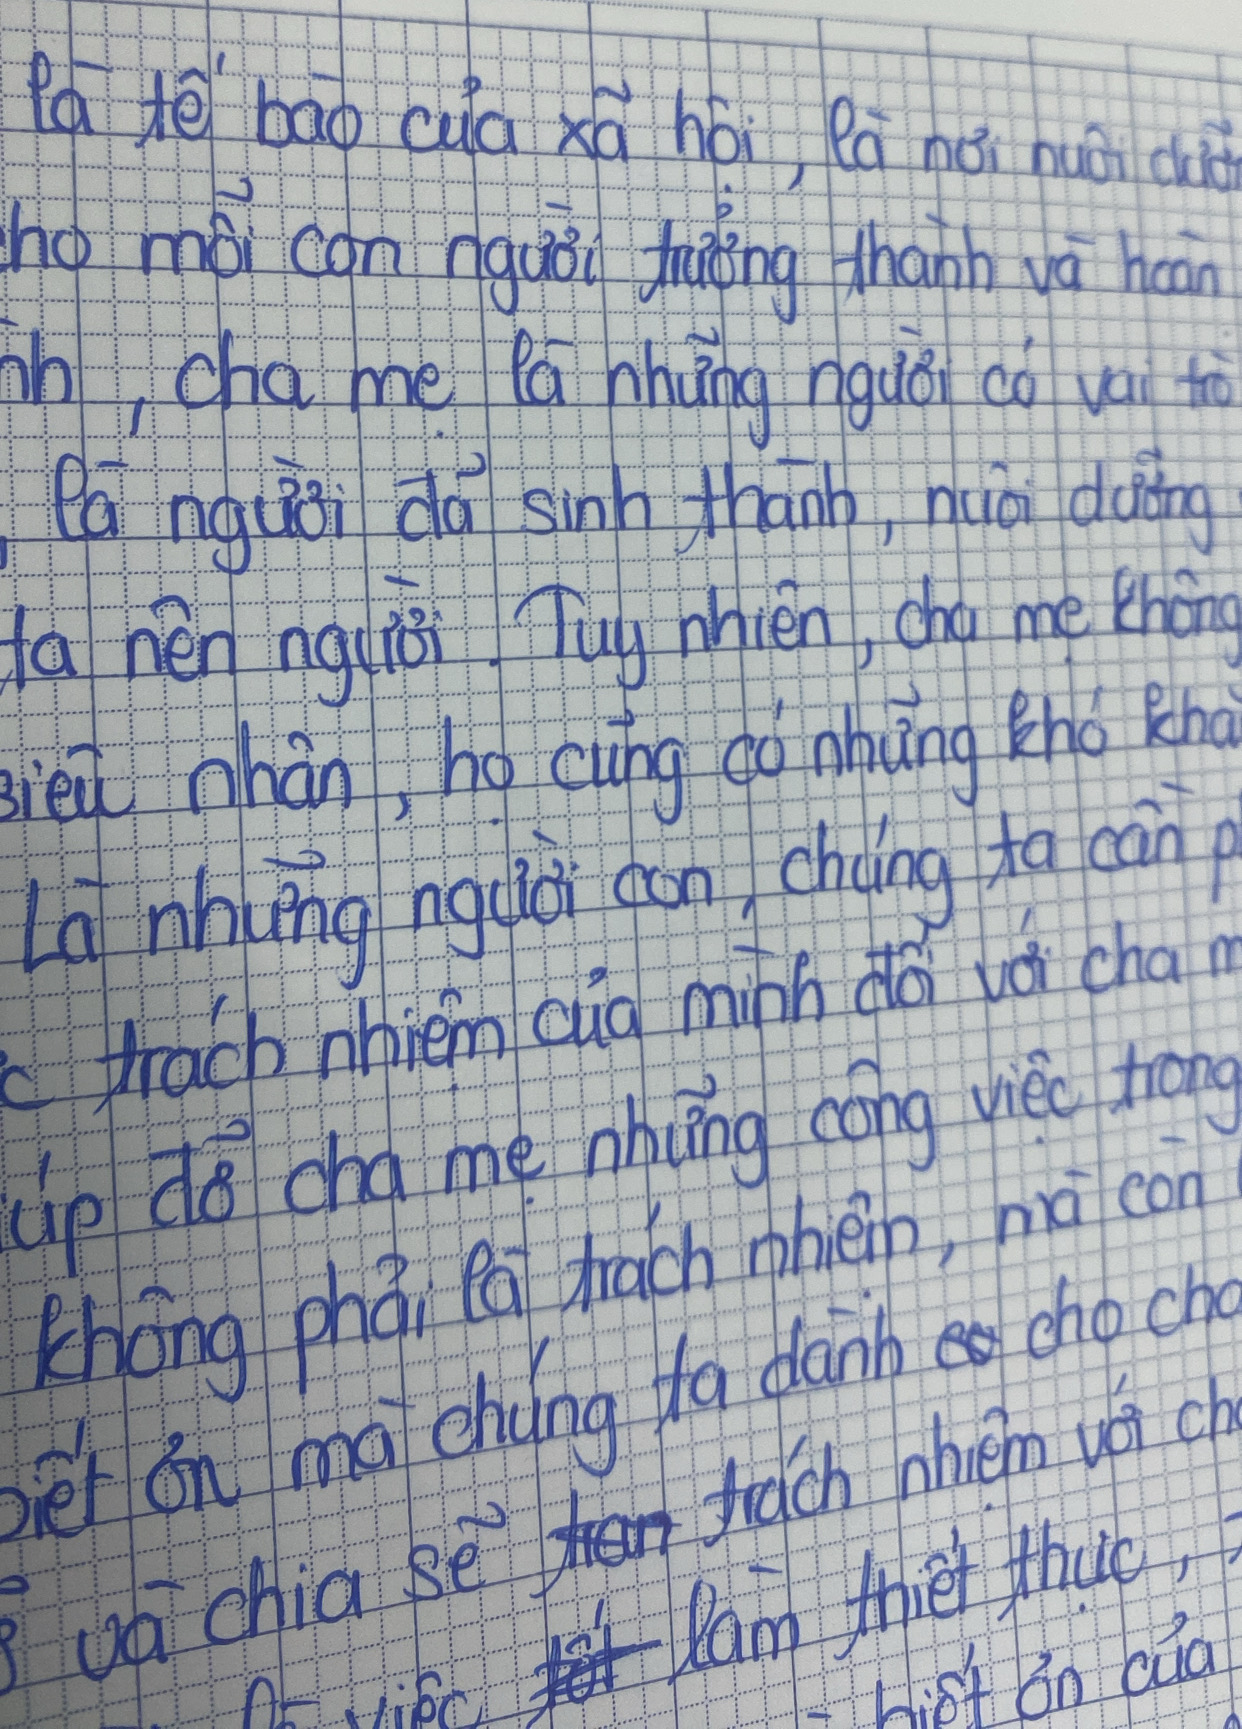 là tế bào của xã hội, là nơi nuôi dưỡn
cho mỗi con người trưởng thành và hoàn
ình, cha mẹ là những người có vai trò
, là người đã sinh thành, nuôi dưỡng
ta nên người. Tuy nhiên, cha mẹ không
siêu nhân, họ cũng có những khó khă
Là những người con, chúng ta cần p
c trách nhiệm của mình đối với cha m
iúp đỡ cha mẹ những công việc trong
không phải là trách nhiệm, mà còn
biết ơn mà chúng ta dành cho cha
và chia sẽ tran trách nhiệm với cha
là việc tốt làm thiết thực,
biết ơn của